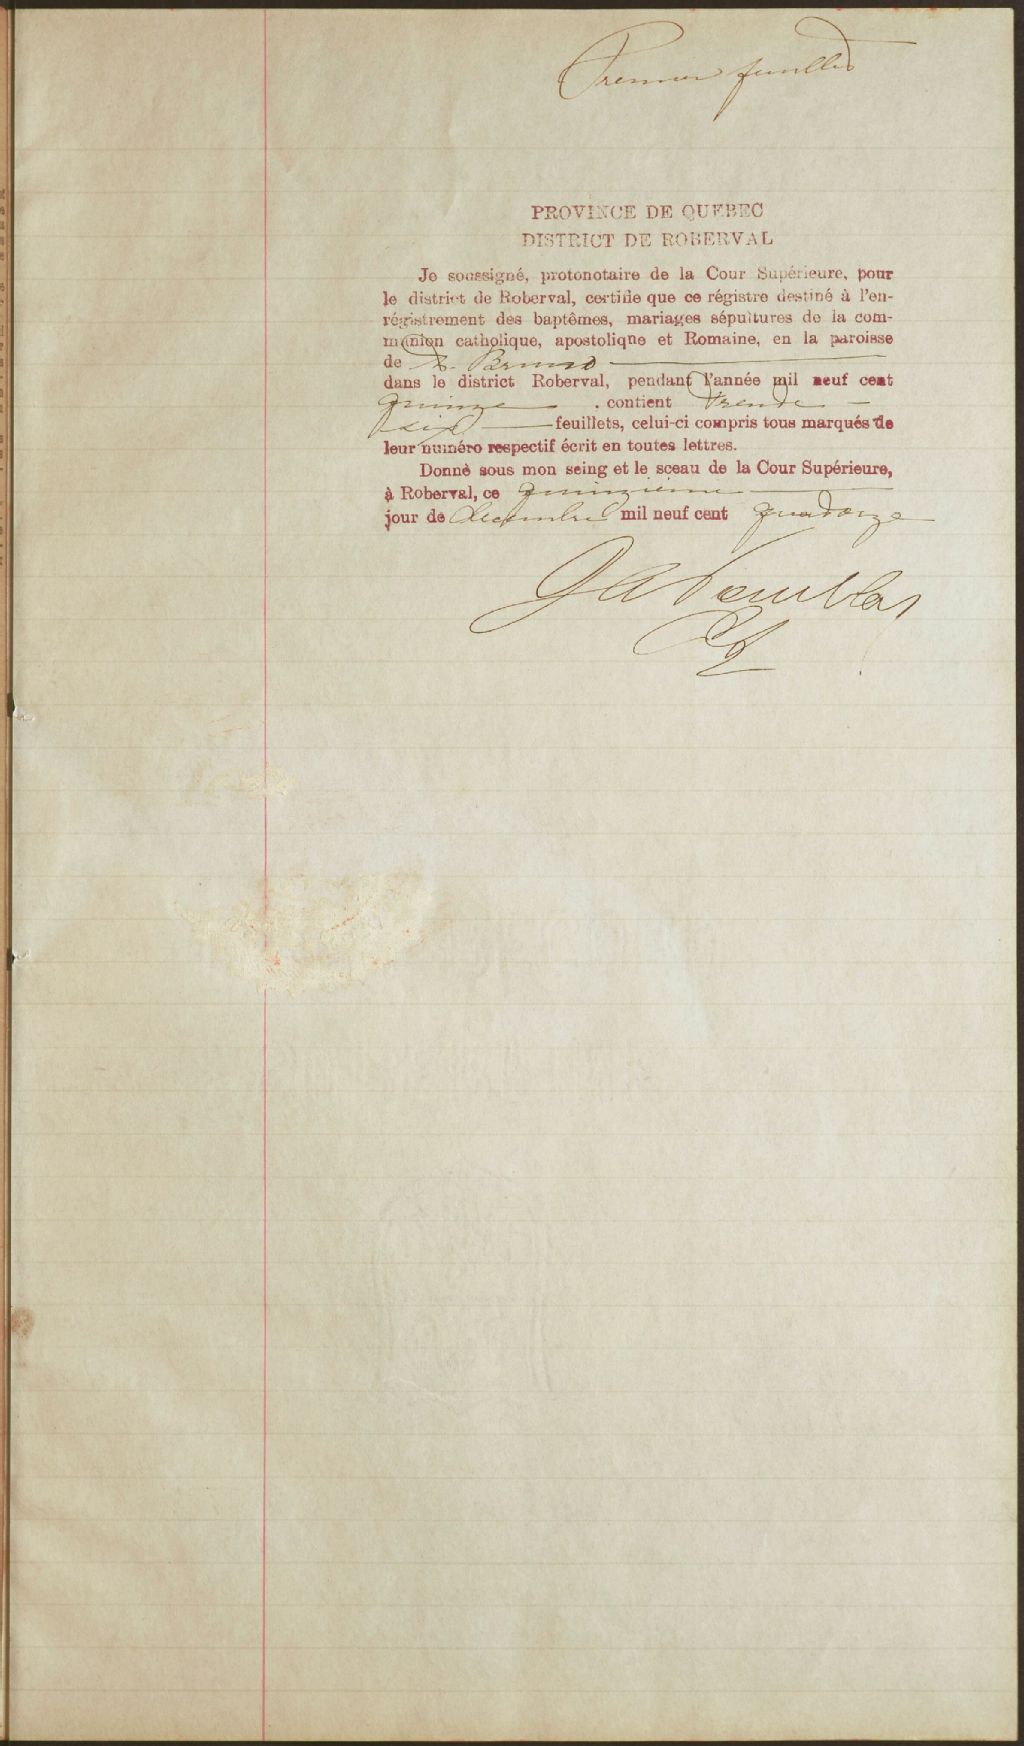 Premier feuillet
PROVINCE DE QUEBEC
DISTRICT DE ROBERVAL
Je soussigné, protonotaire de la Cour Supérieure, pour
le district de Roberval, certifie que ce régistre destiné à l'en-
régistrement des baptêmes, mariages sépultures de la com-
munion catholique, apostolique et Romaine, en la paroisse
de St. Bruno
dans le district Roberval, pendant l'année mil neuf cent
quinze . contient trente
six feuillets, celui-ci compris tous marqués de
leur numéro respectif écrit en toutes lettres.
Donné sous mon seing et le sceau de la Cour Supérieure,
à Roberval, ce quinzieme
jour de decembre mil neuf cent quatorze